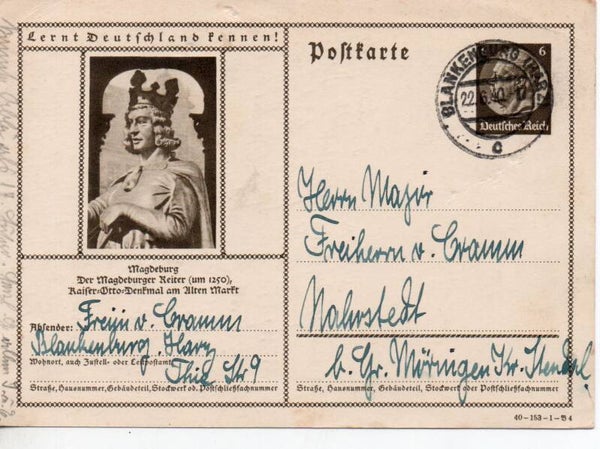 Lernt Deutschland kennen!
Postkarte
6
Deutsches Reich
BLANKENBURG (HARZ)
22.6.40.-17
c
Magdeburg
Der Magdeburger Reiter (um 1250),
Kaiser-Otto-Denkmal am Alten Markt
Absender: Freiin v. Cramm
Blankenburg, Harz
Wohnort, auch Zustell- oder Leitpostamt
Thie Str 9
Straße, Hausnummer, Gebäudeteil, Stockwerk od. Postschließfachnummer
Herrn Major
Freiherrn v. Cramm
Nahrstedt
b. Gr. Möringen Kr. Stendal
Straße, Hausnummer, Gebäudeteil, Stockwerk oder Postschließfachnummer
40-153-1-B4